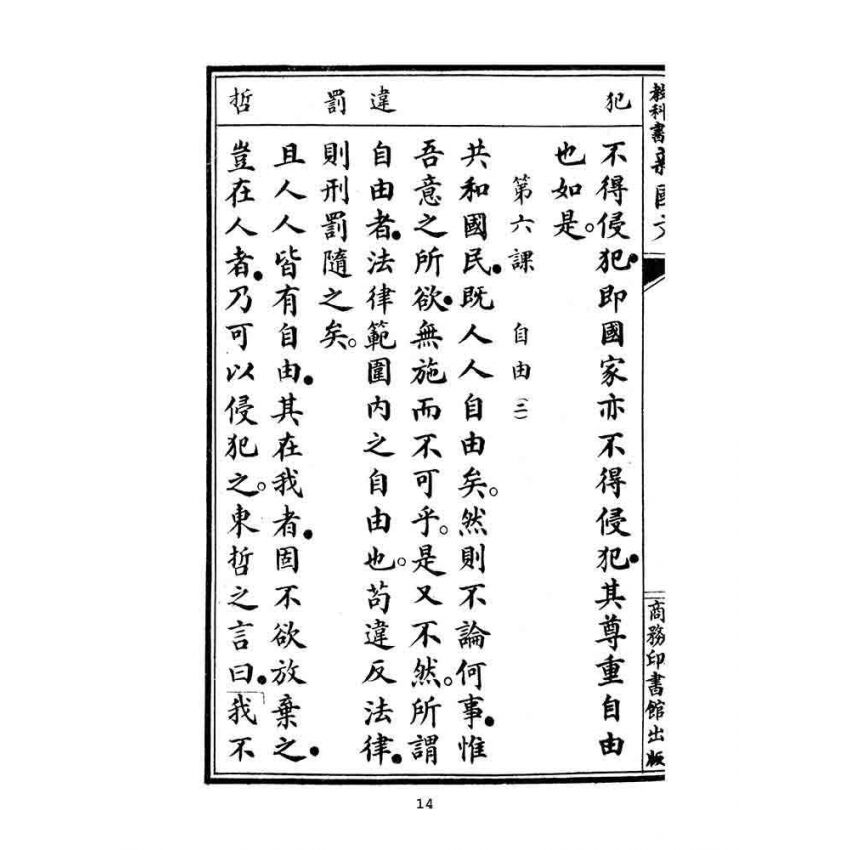 教科書新國文
商務印書館出版
犯
違
罰
哲
不得侵犯●即國家亦不得侵犯●其尊重自由
也如是。
第六課　自由(二)
共和國民●既人人自由矣。然則不論何事●惟
吾意之所欲●無施而不可乎。是又不然。所謂
自由者●法律範圍內之自由也。苟違反法律●
則刑罰隨之矣。
且人人皆有自由●其在我者●固不欲放棄之●
豈在人者●乃可以侵犯之。東哲之言曰●「我不
14